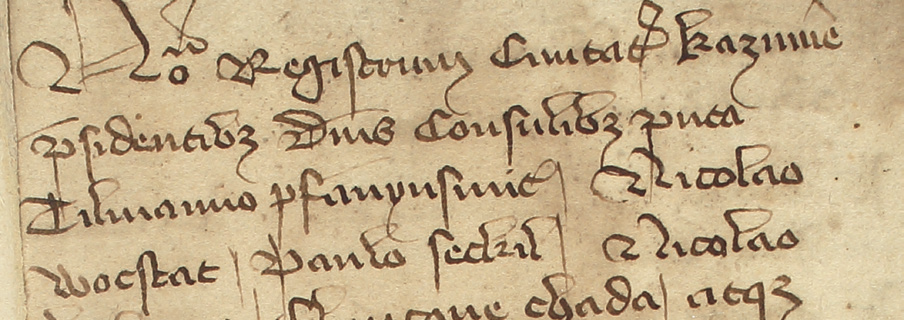 No Registrum Ciuitatis kazimie
psidentibz Dnis Consulibz puta
Tilmanno pfannynsmit Nicolao
wocstat Paulo seckil Nicolao
chada atqz